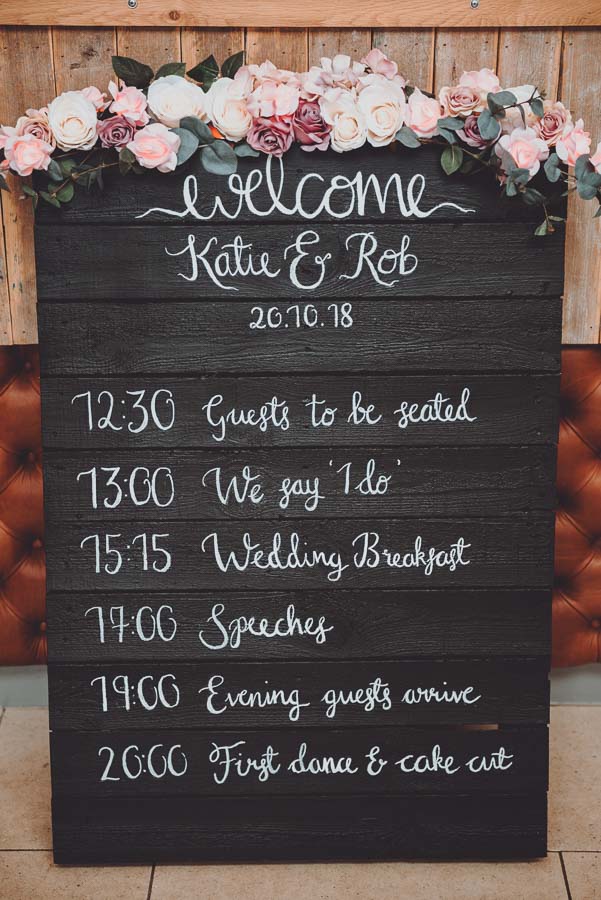 welcome
Katie & Rob
20.10.18
12:30 Guests to be seated
13:00 We say 'I do'
15:15 Wedding Breakfast
17:00 Speeches
19:00 Evening guests arrive
20:00 First dance & cake cut